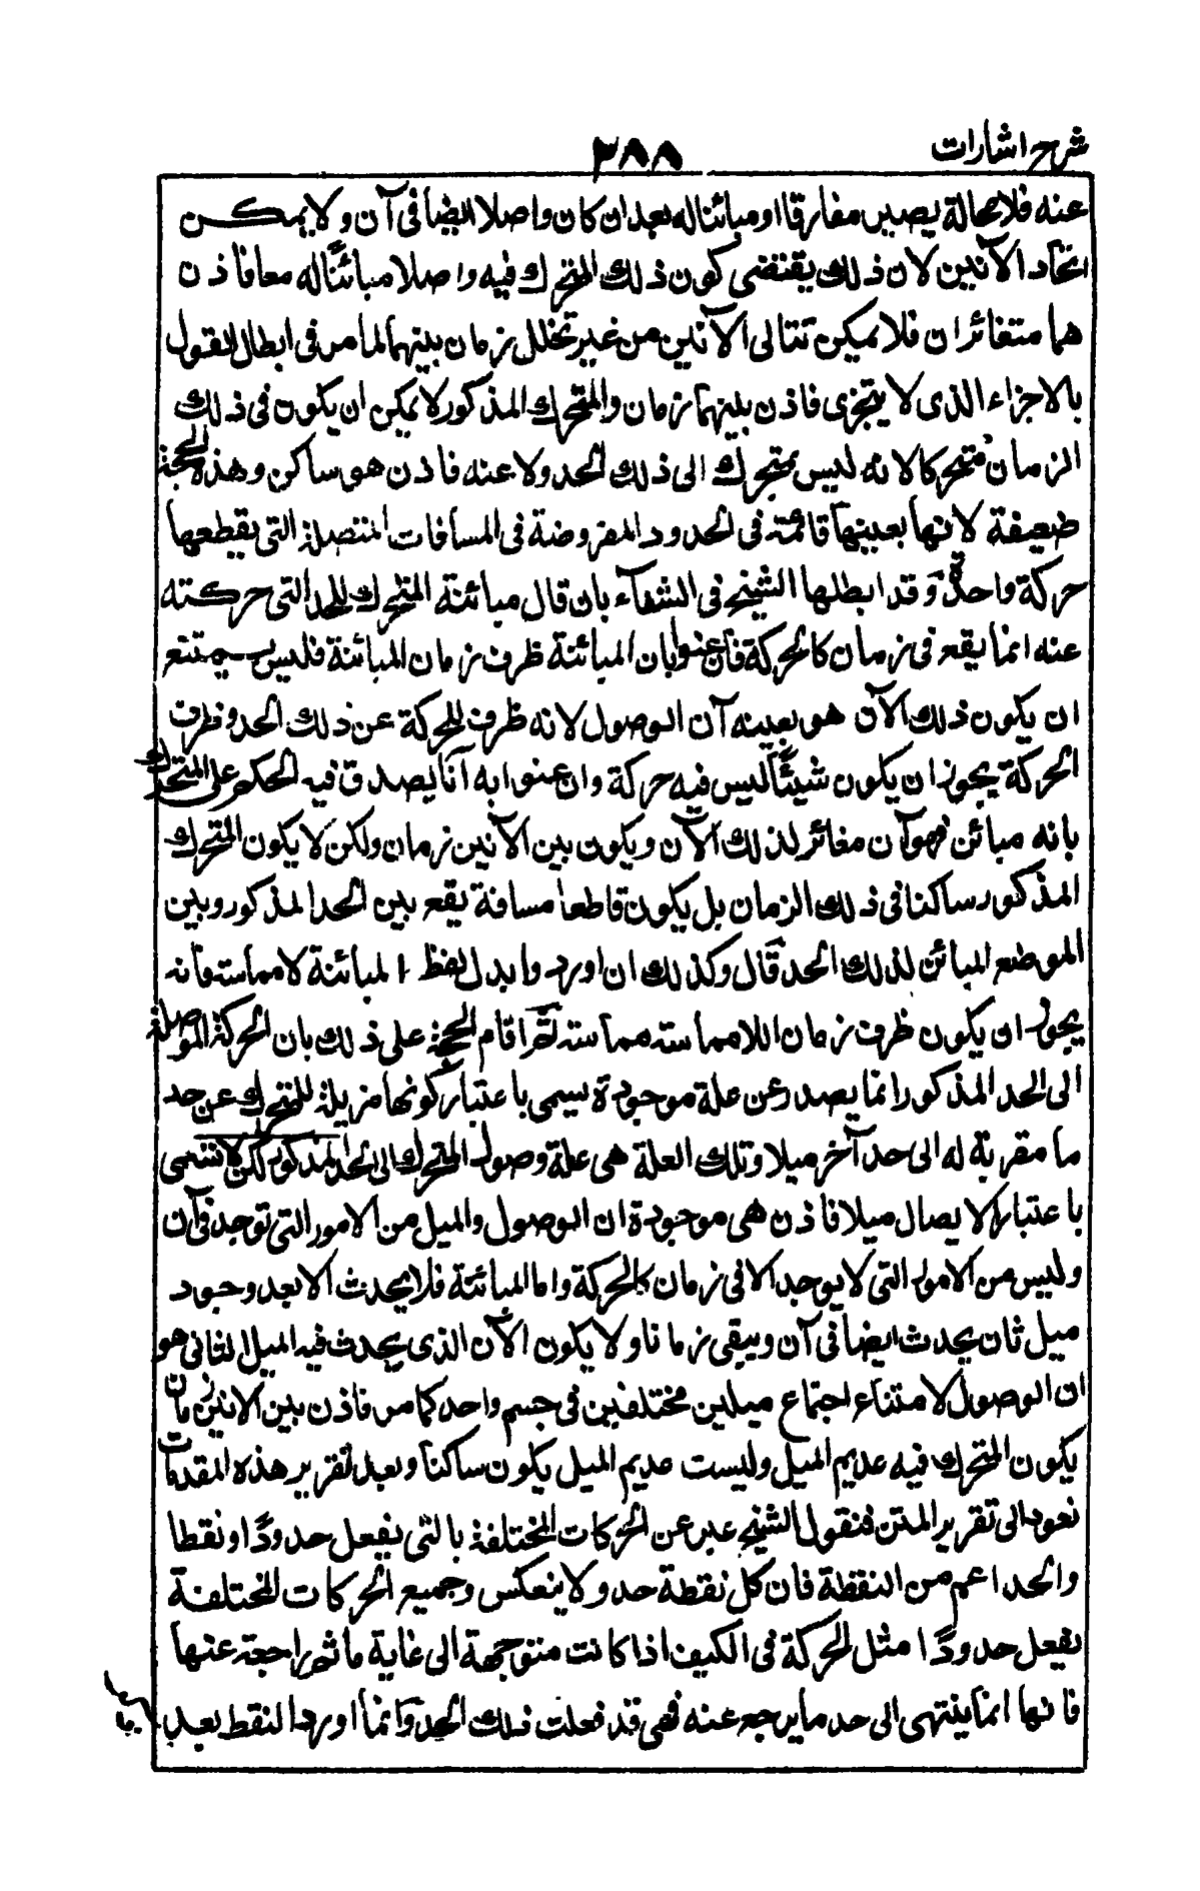 شرح اشارات
٣٨٨
عنه فلا محالة يصير مفارقا او مبائنا له بعد ان كان واصلا ايضا فى آن ولا يمكن
اتحاد الآنين لان ذلك يقتضى كون ذلك المتحرك فيه واصلا مبائنًا له معا فاذن
هما متغائران فلا يمكن تتالى الآنين من غير تخلل زمان بينهما لما مر فى ابطال القول
بالاجزاء الذى لا يتجزى فاذن بينهما زمان والمتحرك المذكور لا يمكن ان يكون فى ذلك
الزمان متحركا لانه ليس بمتحرك الى ذلك الحد ولا عنه فاذن هو ساكن وهذه الحجة
ضعيفة لانها بعينها قائمة فى الحدود المفروضة فى المسافات المتصلة التى يقطعها
حركة واحدة وقد ابطلها الشيخ فى الشفاء بان قال مبائنة المتحرك للحد التى حركته
عنه انما يقع فى زمان كالحركة فان عنوا بان المبائنة ظرف زمان المبائنة فليس يمتنع
ان يكون ذلك الآن هو بعينه آن الوصول لانه ظرف للحركة عن ذلك الحد وظرف
الحركة يجوز ان يكون شيئًا ليس فيه حركة وان عنوا به آنا يصدق فيه الحكم على المتحرك
بانه مبائن فهو آن مغائر لذلك الآن ويكون بين الآنين زمان ولكن لا يكون المتحرك
المذكور ساكنا فى ذلك الزمان بل يكون قاطعا مسافة يقع بين الحد المذكور وبين
الموضع المبائن لذلك الحد قال وكذلك ان اوردوا بدل لفظ المبائنة لا مماسته فانه
يجوز ان يكون ظرف زمان اللامماسته مماسته ثم اقام الحجة على ذلك بان الحركة الموصلة
الى الحد المذكور انما يصدر عن علة موجودة يسمى باعتبار كونها مزيلة للمتحرك عن حد
ما مقربة له الى حد آخر ميلا وتلك العلة هى علة وصول المتحرك الى الحد المذكور لكن لا تسمى
باعتبار الايصال ميلا فاذن هى موجودة ان الوصول والميل من الامور التى توجد فى آن
وليس من الامور التى لا يوجد الا فى زمان كالحركة واما المبائنة فلا يحدث الا بعد وجود
ميل ثان يحدث ايضا فى آن ويبقى زمانا ولا يكون الآن الذى يحدث فيه الميل الثانى هو
ان الوصول لامتناع اجتماع ميلين مختلفين فى جسم واحد كما مر فاذن بين الانين زمان
يكون المتحرك فيه عديم الميل وليست عديم الميل يكون ساكنا وبعد تقرير هذه المقدمات
نعود الى تقرير المتن فنقول الشيخ عبر عن الحركات المختلفة بالتى يفعل حدودًا ونقطا
والحد اعم من النقطة فان كل نقطة حد ولا ينعكس وجميع الحركات المختلفة
يفعل حدودًا مثل الحركة فى الكيف اذا كانت متوجهة الى غاية ما ثم راجعة عنها
فانها انما ينتهى الى حد ما يرجع عنه فهى قد فعلت ذلك الحد وانما اورد النقط بعد